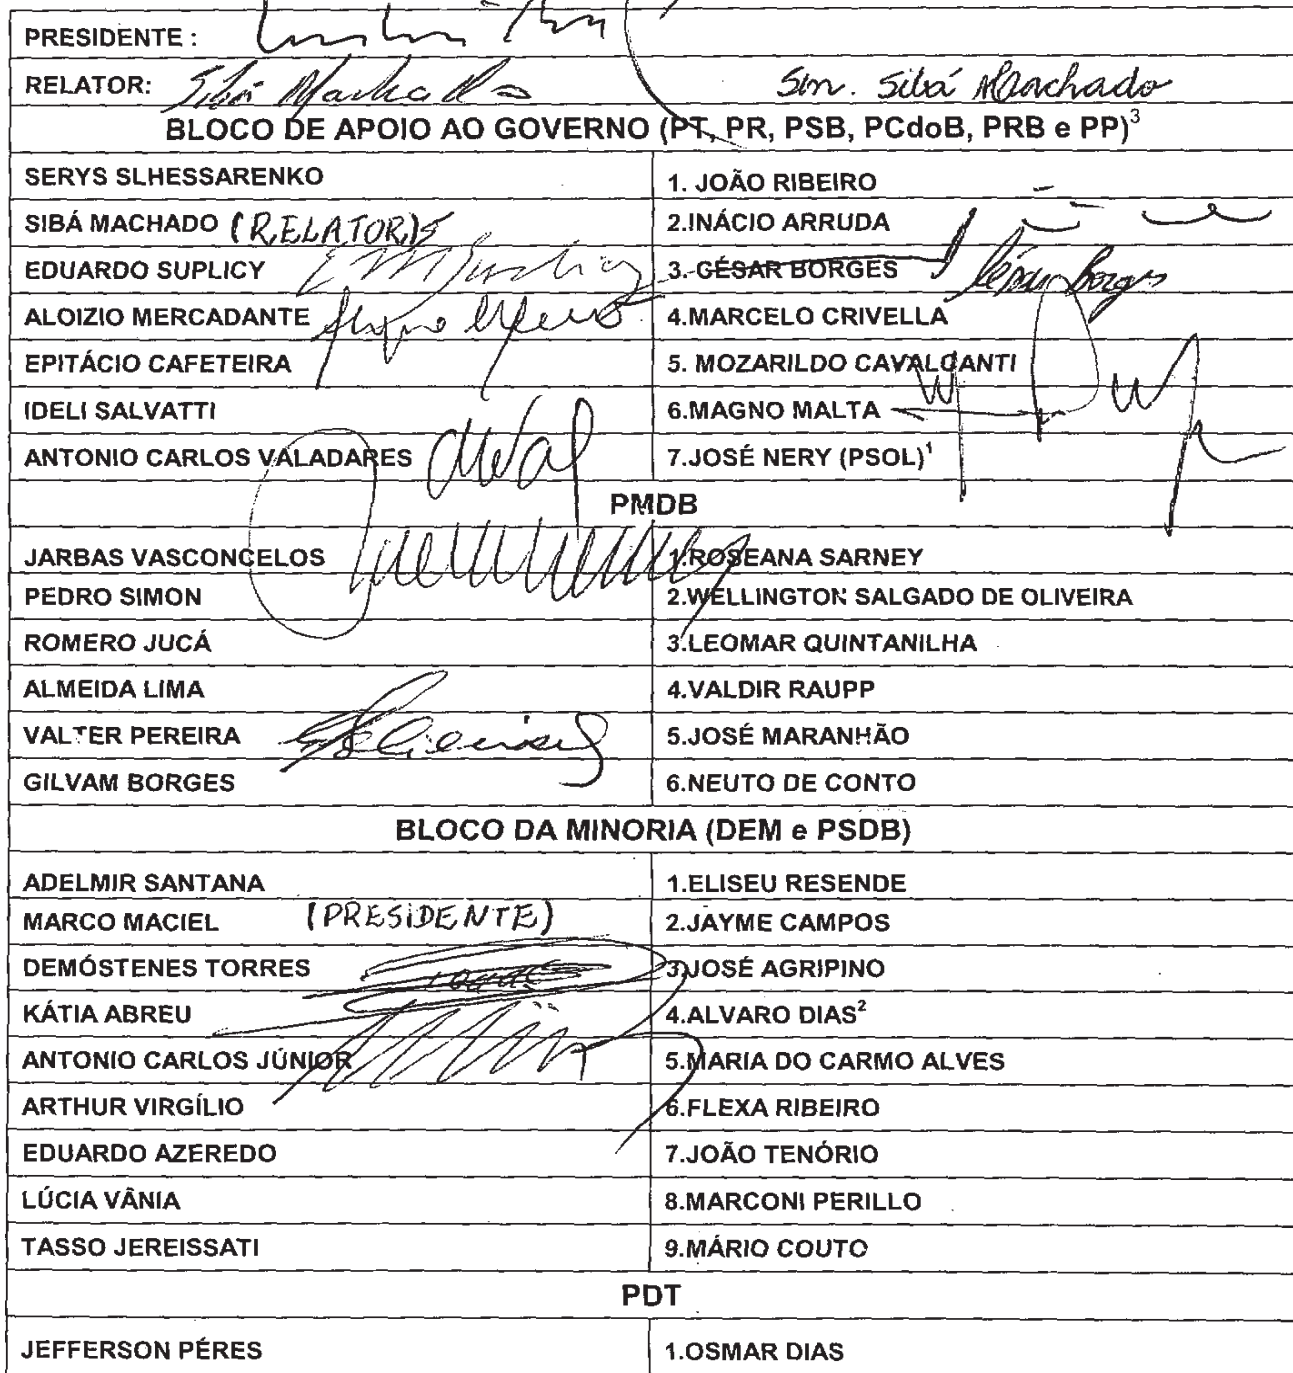 PRESIDENTE :
RELATOR: Sibá Machado Sen. Sibá Machado
BLOCO DE APOIO AO GOVERNO (PT, PR, PSB, PCdoB, PRB e PP)³
SERYS SLHESSARENKO 1. JOÃO RIBEIRO
SIBÁ MACHADO (RELATOR) 2.INÁCIO ARRUDA
EDUARDO SUPLICY 3. CÉSAR BORGES César Borges
ALOIZIO MERCADANTE 4.MARCELO CRIVELLA
EPITÁCIO CAFETEIRA 5. MOZARILDO CAVALCANTI
IDELI SALVATTI 6.MAGNO MALTA
ANTONIO CARLOS VALADARES 7.JOSÉ NERY (PSOL)¹
PMDB
JARBAS VASCONCELOS 1.ROSEANA SARNEY
PEDRO SIMON 2.WELLINGTON SALGADO DE OLIVEIRA
ROMERO JUCÁ 3.LEOMAR QUINTANILHA
ALMEIDA LIMA 4.VALDIR RAUPP
VALTER PEREIRA 5.JOSÉ MARANHÃO
GILVAM BORGES 6.NEUTO DE CONTO
BLOCO DA MINORIA (DEM e PSDB)
ADELMIR SANTANA 1.ELISEU RESENDE
MARCO MACIEL (PRESIDENTE) 2.JAYME CAMPOS
DEMÓSTENES TORRES 3.JOSÉ AGRIPINO
KÁTIA ABREU 4.ALVARO DIAS²
ANTONIO CARLOS JÚNIOR 5.MARIA DO CARMO ALVES
ARTHUR VIRGÍLIO 6.FLEXA RIBEIRO
EDUARDO AZEREDO 7.JOÃO TENÓRIO
LÚCIA VÂNIA 8.MARCONI PERILLO
TASSO JEREISSATI 9.MÁRIO COUTO
PDT
JEFFERSON PÉRES 1.OSMAR DIAS